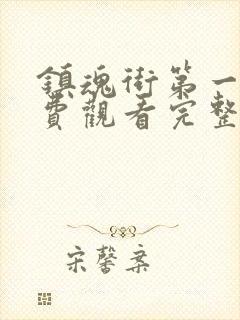 鎮魂街第一
費觀看完整
宋馨棄